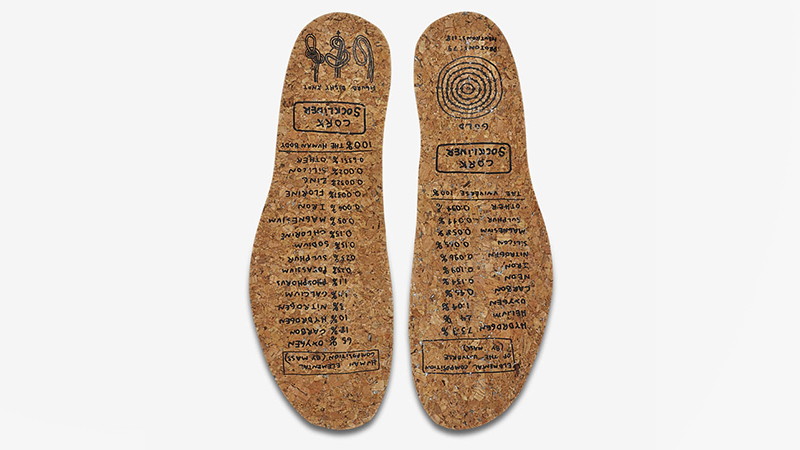 ELEMENTAL COMPOSITION
OF THE UNIVERSE
(BY MASS)
HYDROGEN 73.9 %
HELIUM 24 %
OXYGEN 1.04 %
CARBON 0.45 %
NEON 0.134 %
IRON 0.109 %
NITROGEN 0.096 %
SILICON 0.065 %
MAGNESIUM 0.058 %
SULPHUR 0.044 %
OTHER 0.094 %
THE UNIVERSE 100%
CORK
SOCKLINER
GOLD
PROTONS: 79
NEUTRONS: 118
HUMAN ELEMENTAL
COMPOSITION (BY MASS)
65 % OXYGEN
18 % CARBON
10 % HYDROGEN
3 % NITROGEN
% CALCIUM
1.1 % PHOSPHORUS
0.25 % POTASSIUM
0.25 % SULPHUR
0.15 % SODIUM
0.15 % CHLORINE
0.05 % MAGNESIUM
0.006 % IRON
0.0037 % FLORINE
0.0032 % ZINC
0.002 % SILICON
0.6351 % OTHER
100% THE HUMAN BODY
CORK
SOCKLINER
FIGURE EIGHT KNOT